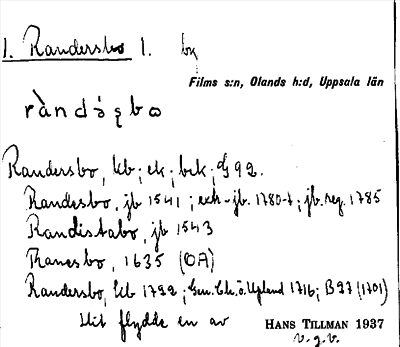 1. Randersbo 1. by
Films s:n, Olands h:d, Uppsala län
ràndə̣ṣbω
Randersbo, kb; ek; brk; G 92.
Randesbo, jb 1541; extr-jb. 1780-t; jb. reg. 1785
Randistabo, jb 1543
Ranesbo, 1635 (OA)
Randersbo, kb 1792; Gen. Ch. ö. Upland 1716; B97 (1701)
Hit flydde en av
HANS TILLMAN 1937
v.g.v.